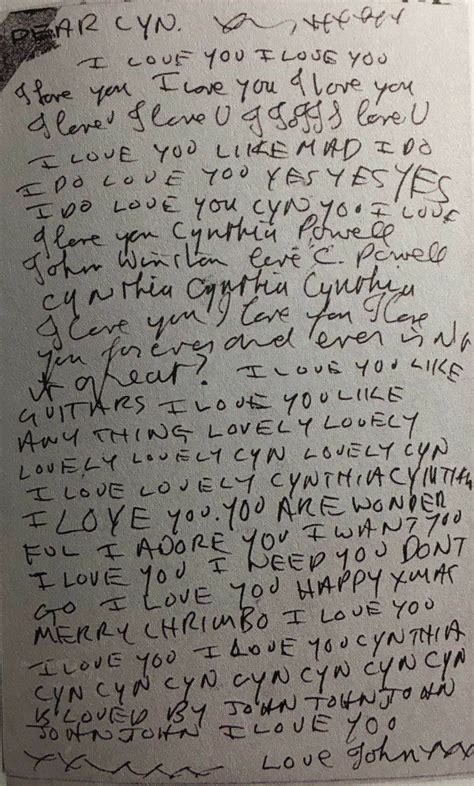 DEAR CYN.
I LOVE YOU I LOVE YOU
I love you I love you I love you
I love U I love U I I love U
I LOVE YOU LIKE MAD I DO
I DO LOVE YOU YES YES YES
I DO LOVE YOU CYN YOU I LOVE
I love you Cynthia Powell
John Winston love C. Powell
Cynthia Cynthia Cynthia
I love you I love you I love
you forever and ever is N
it great? I LOVE YOU LIKE
GUITARS I LOVE YOU LIKE
ANY THING LOVELY LOVELY
LOVELY LOVELY CYN LOVELY CYN
I LOVE LOVELY CYNTHIA CYNTHIA
I LOVE YOU. YOU ARE WONDER
FUL I ADORE YOU I WANT YOU
I LOVE YOU I NEED YOU DONT
GO I LOVE YOU HAPPY XMAS
MERRY CHRIMBO I LOVE YOU
I LOVE YOU I LOVE YOU CYNTHIA
CYN CYN CYN CYN CYN CYN CYN
IS LOVED BY JOHN JOHN JOHN
JOHN JOHN I LOVE YOU
LOVE John xxx